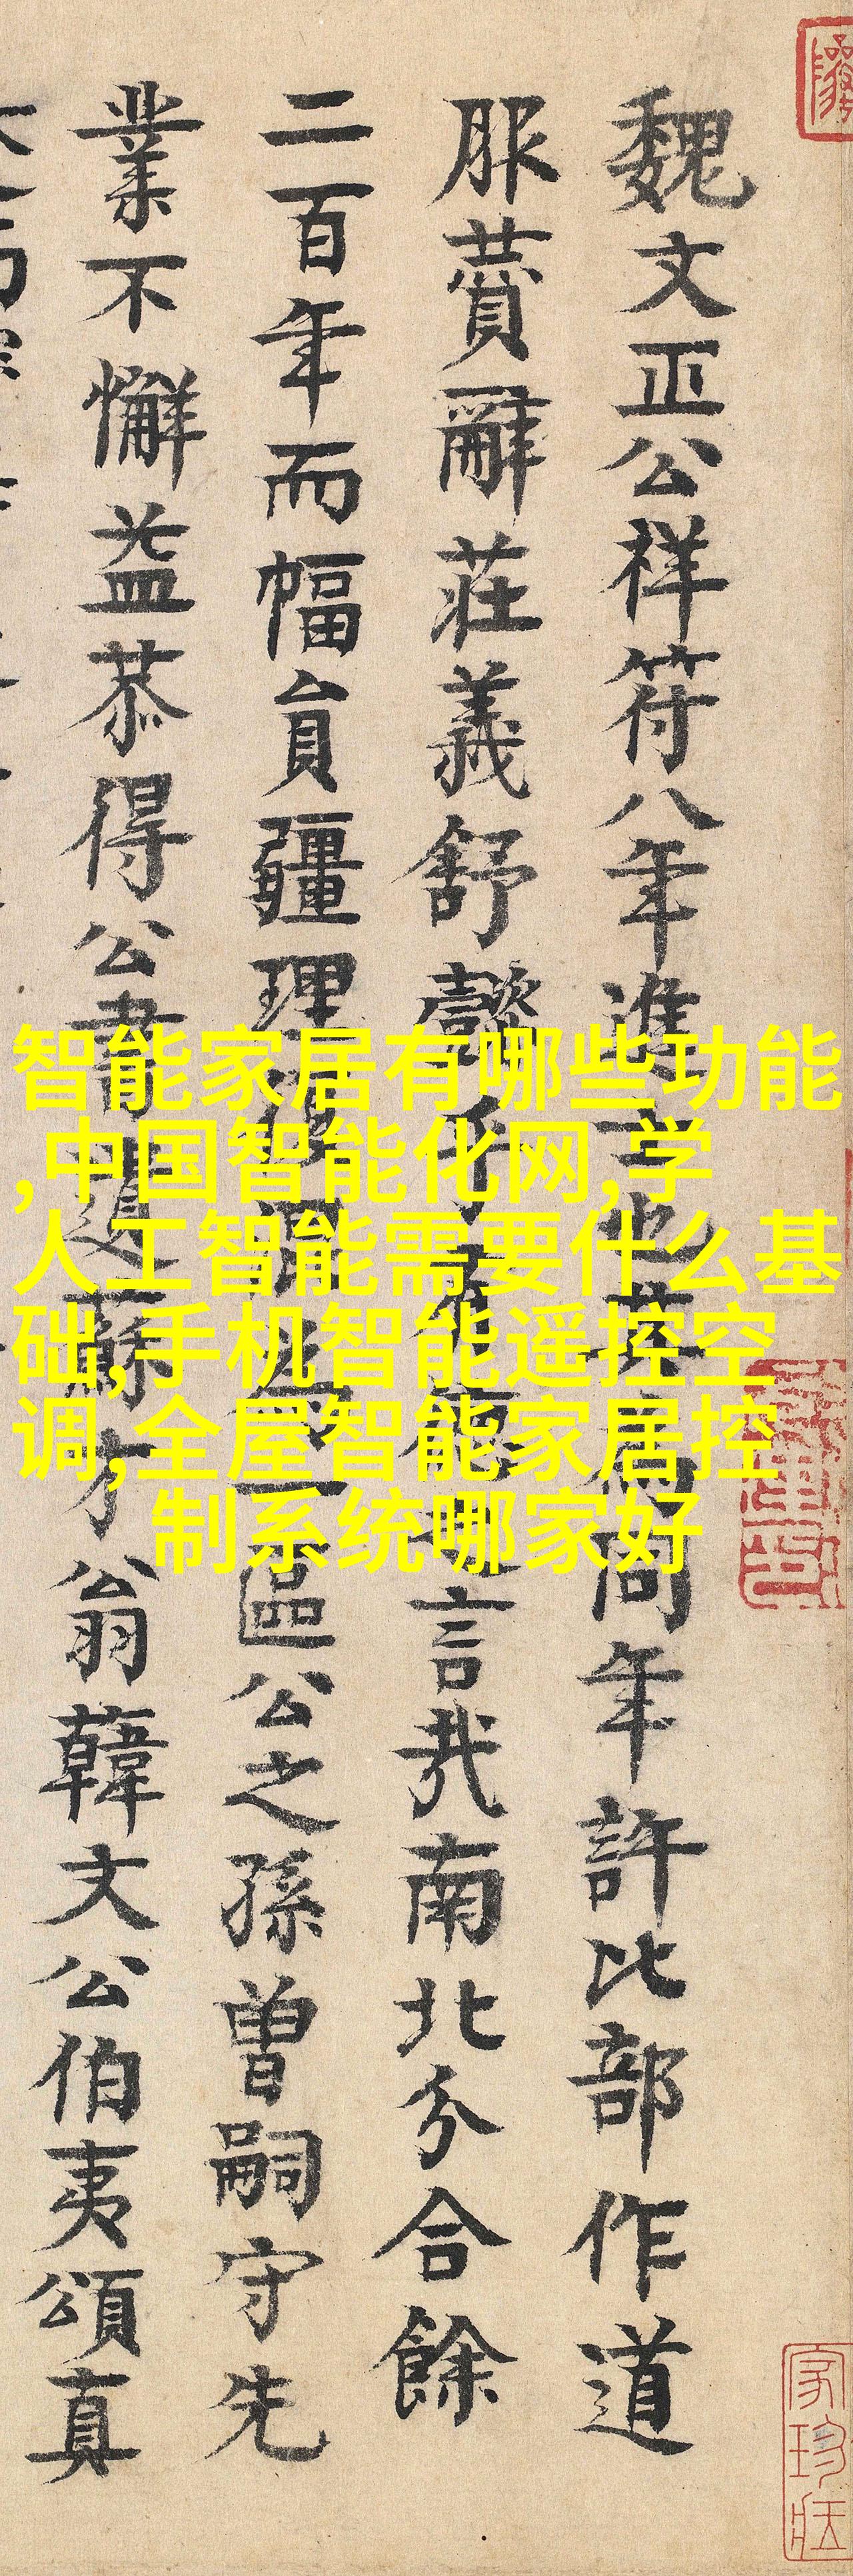 魏文正公祥符八年進士也爲同年許比部作道
服賛辭莊義舒懿乎有德之言哉南北分合餘
二百年而幅員疆理混爲一區公之孫曾嗣守先
業不懈益恭得公書遺蘇才翁韓文公伯夷頌真
智能家居有哪些功能
,中国智能化网,学
人工智能需要什么基
础,手机智能遥控空
调,全屋智能家居控
制系统哪家好